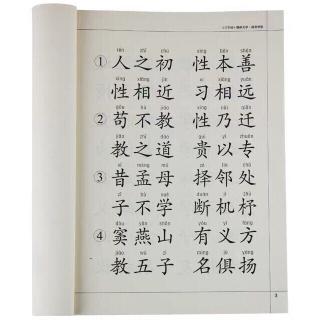 rén zhī chū xìng běn shàn
①人之初 性本善
xìng xiāng jìn xí xiāng yuǎn
性相近 习相远
gǒu bú jiào xìng nǎi qiān
②苟不教 性乃迁
jiào zhī dào guì yǐ zhuān
教之道 贵以专
xī mèng mǔ zé lín chǔ
③昔孟母 择邻处
zǐ bù xué duàn jī zhù
子不学 断机杼
dòu yān shān yǒu yì fāng
④窦燕山 有义方
jiào wǔ zǐ míng jù yáng
教五子 名俱扬
3